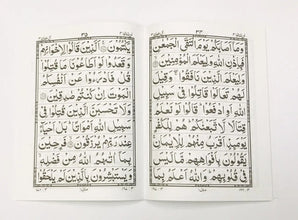 وَمَآ اَصَابَكُمْ يَوْمَ الْتَقَى الْجَمْعٰنِ
فَبِاِذْنِ اللّٰهِ وَلِيَعْلَمَ الْمُؤْمِنِيْنَ
وَلِيَعْلَمَ الَّذِيْنَ نَافَقُوْا وَقِيْلَ
لَهُمْ تَعَالَوْا قَاتِلُوْا فِيْ سَبِيْلِ
اللّٰهِ اَوِ ادْفَعُوْا قَالُوْا لَوْ نَعْلَمُ
قِتَالًا لَّاتَّبَعْنٰكُمْ هُمْ لِلْكُفْرِ
يَوْمَئِذٍ اَقْرَبُ مِنْهُمْ لِلْاِيْمَانِ
يَقُوْلُوْنَ بِاَفْوَاهِهِمْ مَّا لَيْسَ
فِيْ قُلُوْبِهِمْ وَاللّٰهُ اَعْلَمُ بِمَا
يَكْتُمُوْنَ الَّذِيْنَ قَالُوْا لِاِخْوَانِهِمْ
وَقَعَدُوْا لَوْ اَطَاعُوْنَا مَا قُتِلُوْا
قُلْ فَادْرَءُوْا عَنْ اَنْفُسِكُمُ
الْمَوْتَ اِنْ كُنْتُمْ صٰدِقِيْنَ
وَلَا تَحْسَبَنَّ الَّذِيْنَ قُتِلُوْا فِيْ
سَبِيْلِ اللّٰهِ اَمْوَاتًا بَلْ اَحْيَآءٌ
عِنْدَ رَبِّهِمْ يُرْزَقُوْنَ فَرِحِيْنَ
بِمَآ اٰتٰىهُمُ اللّٰهُ مِنْ فَضْلِهٖ
وَيَسْتَبْشِرُوْنَ بِالَّذِيْنَ لَمْ يَلْحَقُوْا